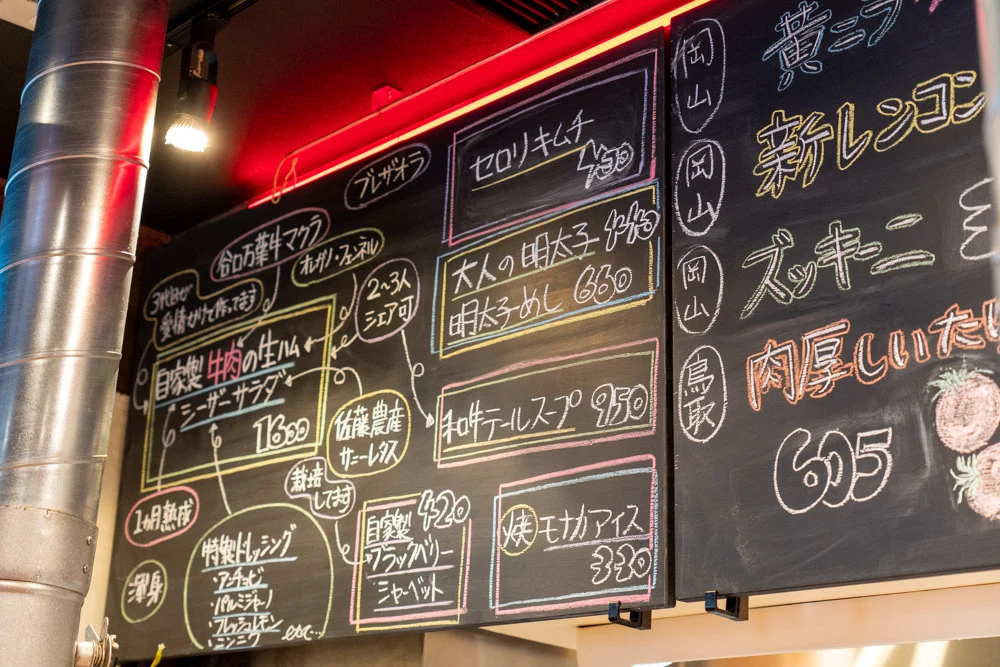 ブレザオラ
谷口万葉牛マクラ
オレガノ・フェンネル
3代目が
愛情かけて作ってます
2〜3人
シェア可
自家製 牛肉の生ハム
シーザーサラダ
1600
佐藤農産
サニーレタス
栽培
してます
1ヵ月熟成
渾身
特製ドレッシング
・アンチョビ
・パルミジャーノ
・フレッシュレモン
・ニンニク etc…
自家製 420
ブラックベリー
シャーベット
セロリキムチ
430
大人の明太子 440
明太子めし 660
和牛テールスープ 950
焼モナカアイス
330
岡山 黄ニラ
岡山 新レンコン
岡山 ズッキーニ
鳥取 肉厚しいたけ
605